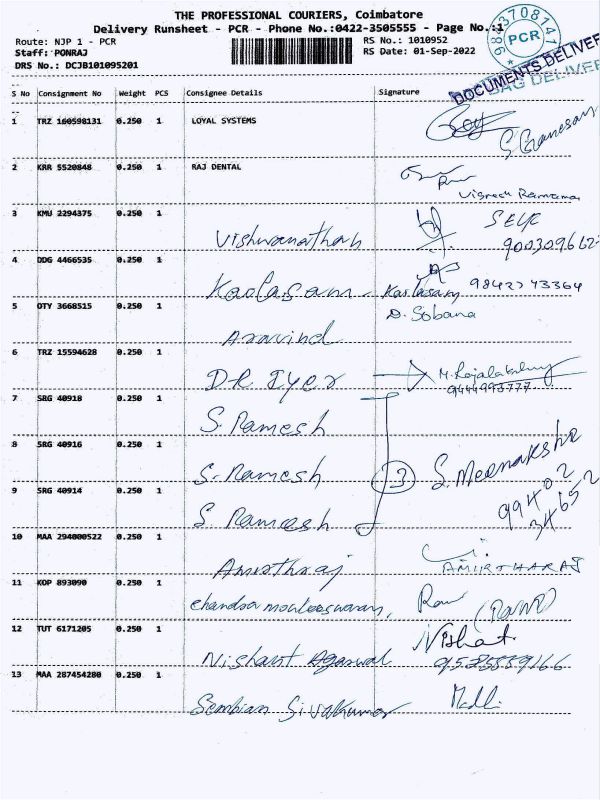 THE PROFESSIONAL COURIERS, Coimbatore
Delivery Runsheet - PCR - Phone No.:0422-3505555 - Page No.:1
Route: NJP 1 - PCR
RS No.: 1010952
Staff: PONRAJ
RS Date: 01-Sep-2022
DRS No.: DCJB101095201
PCR
DOCUMENTS DELIVER
S No Consignment No Weight PCS Consignee Details Signature
1 TRZ 160598131 0.250 1 LOYAL SYSTEMS
S. Ganesan
2 KRR 5520848 0.250 1 RAJ DENTAL
3 KMU 2294375 0.250 1
Vishwanathan SELF
4 DDG 4466535 0.250 1
Kailasam Kailasam 9842743364
5 OTY 3668515 0.250 1 D. Sobana
Aravind
6 TRZ 15594628 0.250 1
DR Iyer M. Rajalakshmy
9444993777
7 SRG 40918 0.250 1
S. Ramesh
8 SRG 40916 0.250 1
S. Ramesh 3 S. Meenakshi
9 SRG 40914 0.250 1 99402
S. Ramesh 34652
10 MAA 294000522 0.250 1
Amirthraj AMIRTHARAJ
11 KOP 893090 0.250 1
Chandramouleeswaran,
12 TUT 6171205 0.250 1 Nishat
Nishant Agarwal
13 MAA 287454280 0.250 1
Sembian Sivakumar